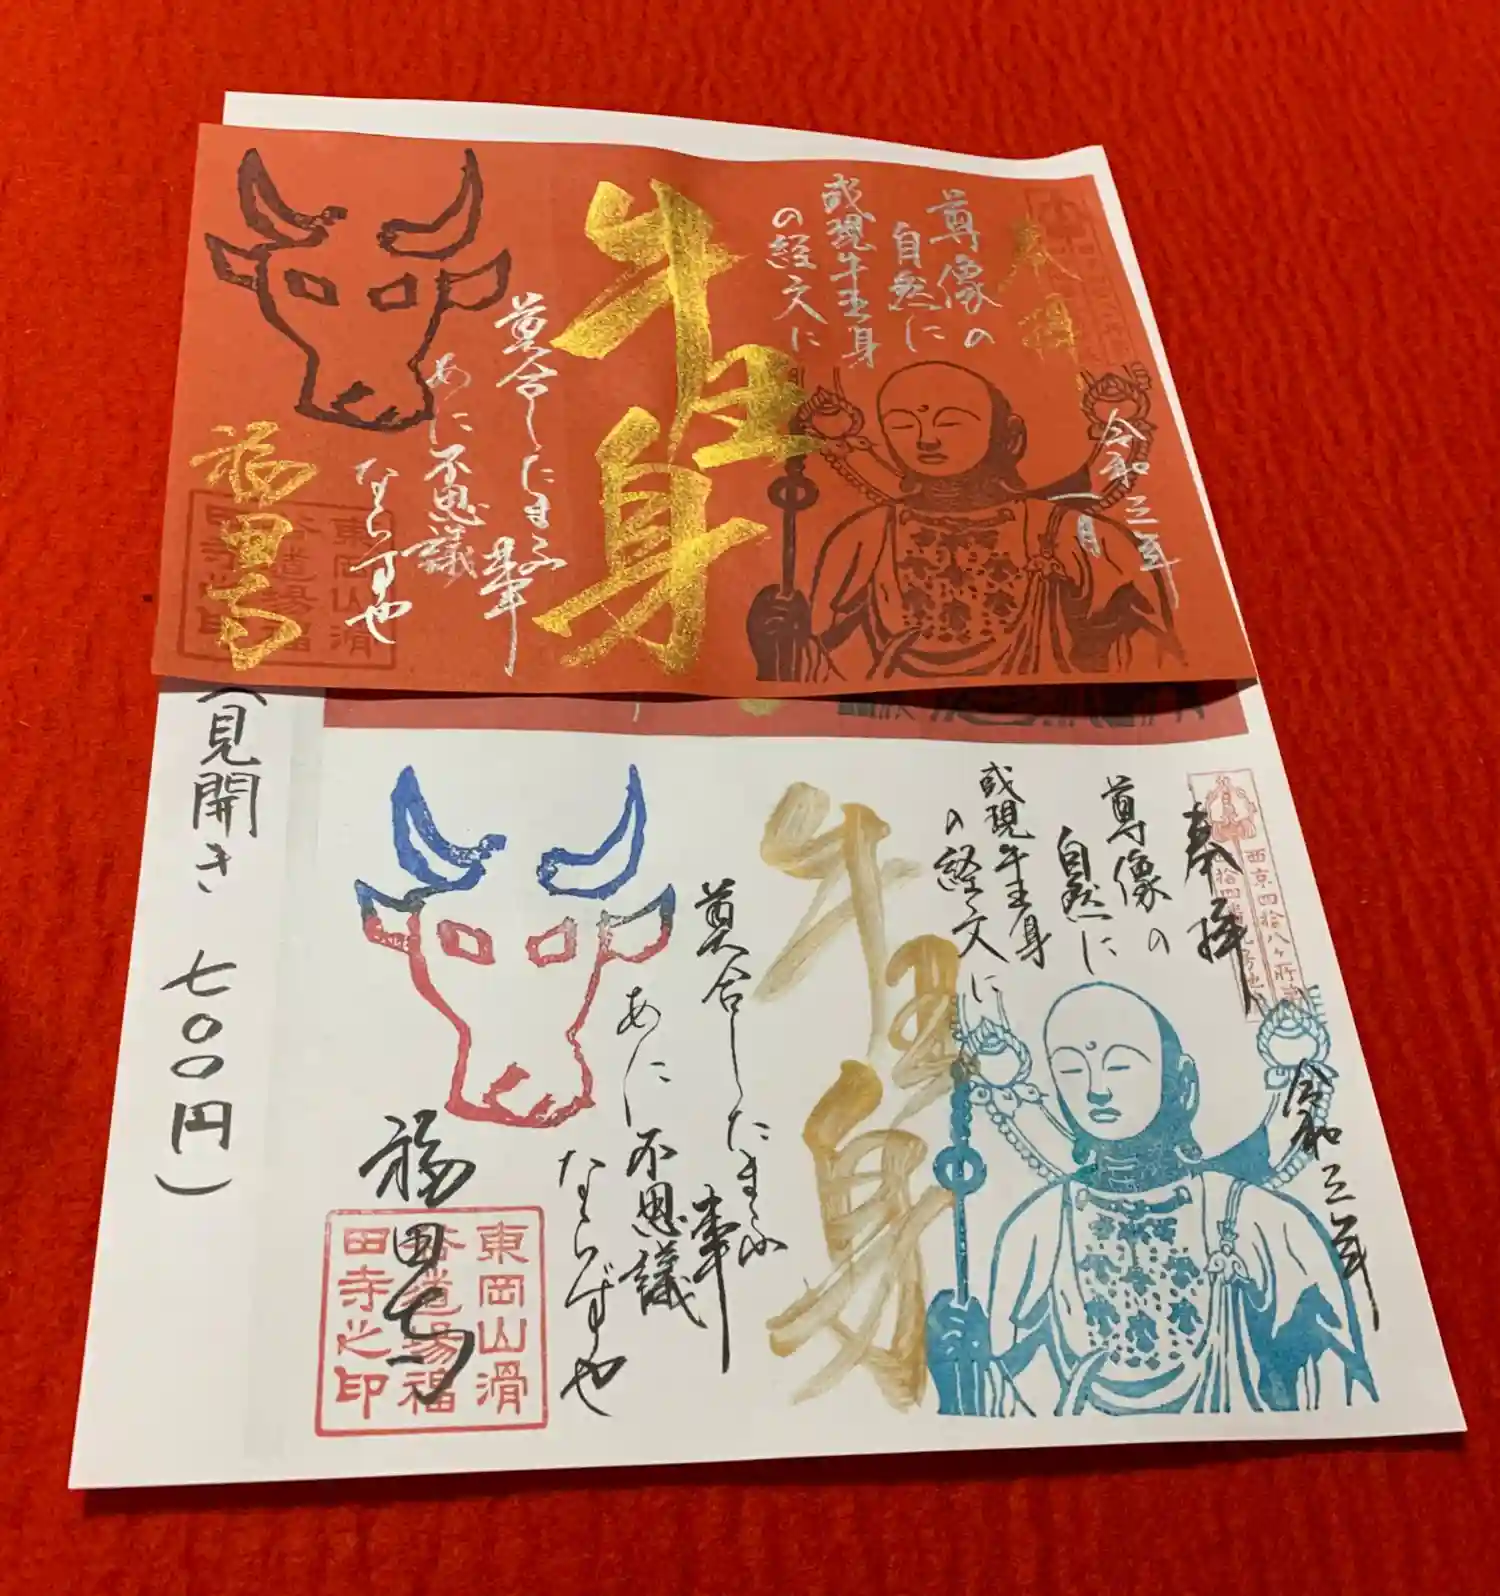 奉拝
令和三年
一月
尊像の
自然に
或現牛王身
の経文に
牛王身
萛合したまふ
事
あに不思議
ならずや
福田寺
東岡山滑
谷道場福
田寺之印
(見開き 七〇〇円)
奉拝
西京四拾八ヶ所
令和三年
尊像の
自然に
或現牛王身
の経文に
牛王身
合したまふ
事
あに不思議
ならずや
福田寺
東岡山滑
谷道場福
田寺之印